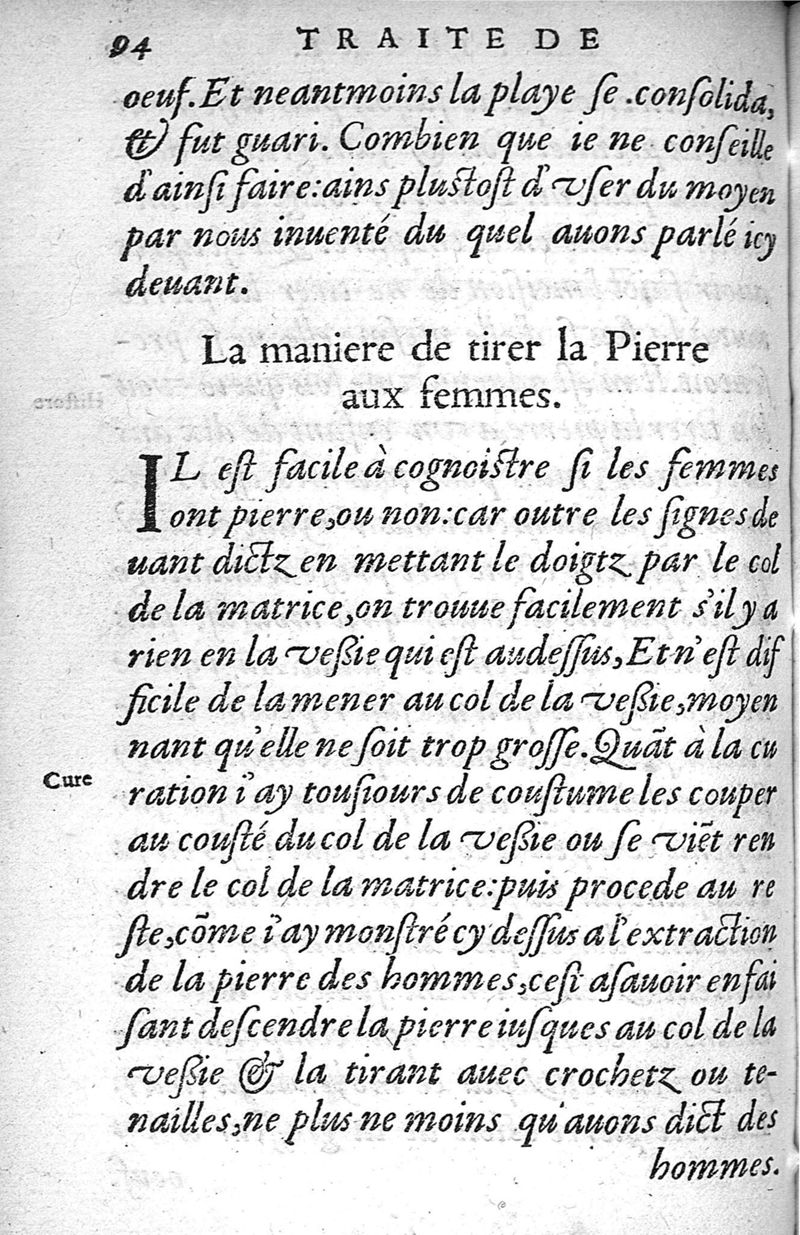 94 TRAITE DE
oeuf. Et neantmoins la playe ſe .conſolida,
& fut guari. Combien que ie ne conſeille
d'ainſi faire: ains pluſtoſt d'vſer du moyen
par nous inuenté du quel auons parlé icy
deuant.
La maniere de tirer la Pierre
aux femmes.
IL eſt facile à cognoiſtre ſi les femmes
ont pierre, ou non: car outre les ſignes de
uant dictz en mettant le doigtz par le col
de la matrice, on trouue facilement s'il y a
rien en la veßie qui eſt audeſſus, Et n'eſt dif
ficile de la mener au col de la veßie, moyen
nant qu'elle ne ſoit trop groſſe. Quãt à la cu
Cure
ration i'ay touſiours de couſtume les couper
au couſté du col de la veßie ou ſe viẽt ren
dre le col de la matrice: puis procede au re
ſte, cõme i'ay monſtré cy deſſus a l'extraction
de la pierre des hommes, ceſt aſauoir en fai
ſant deſcendre la pierre iuſques au col de la
veßie & la tirant auec crochetz ou te-
nailles, ne plus ne moins qu'auons dict des
hommes.